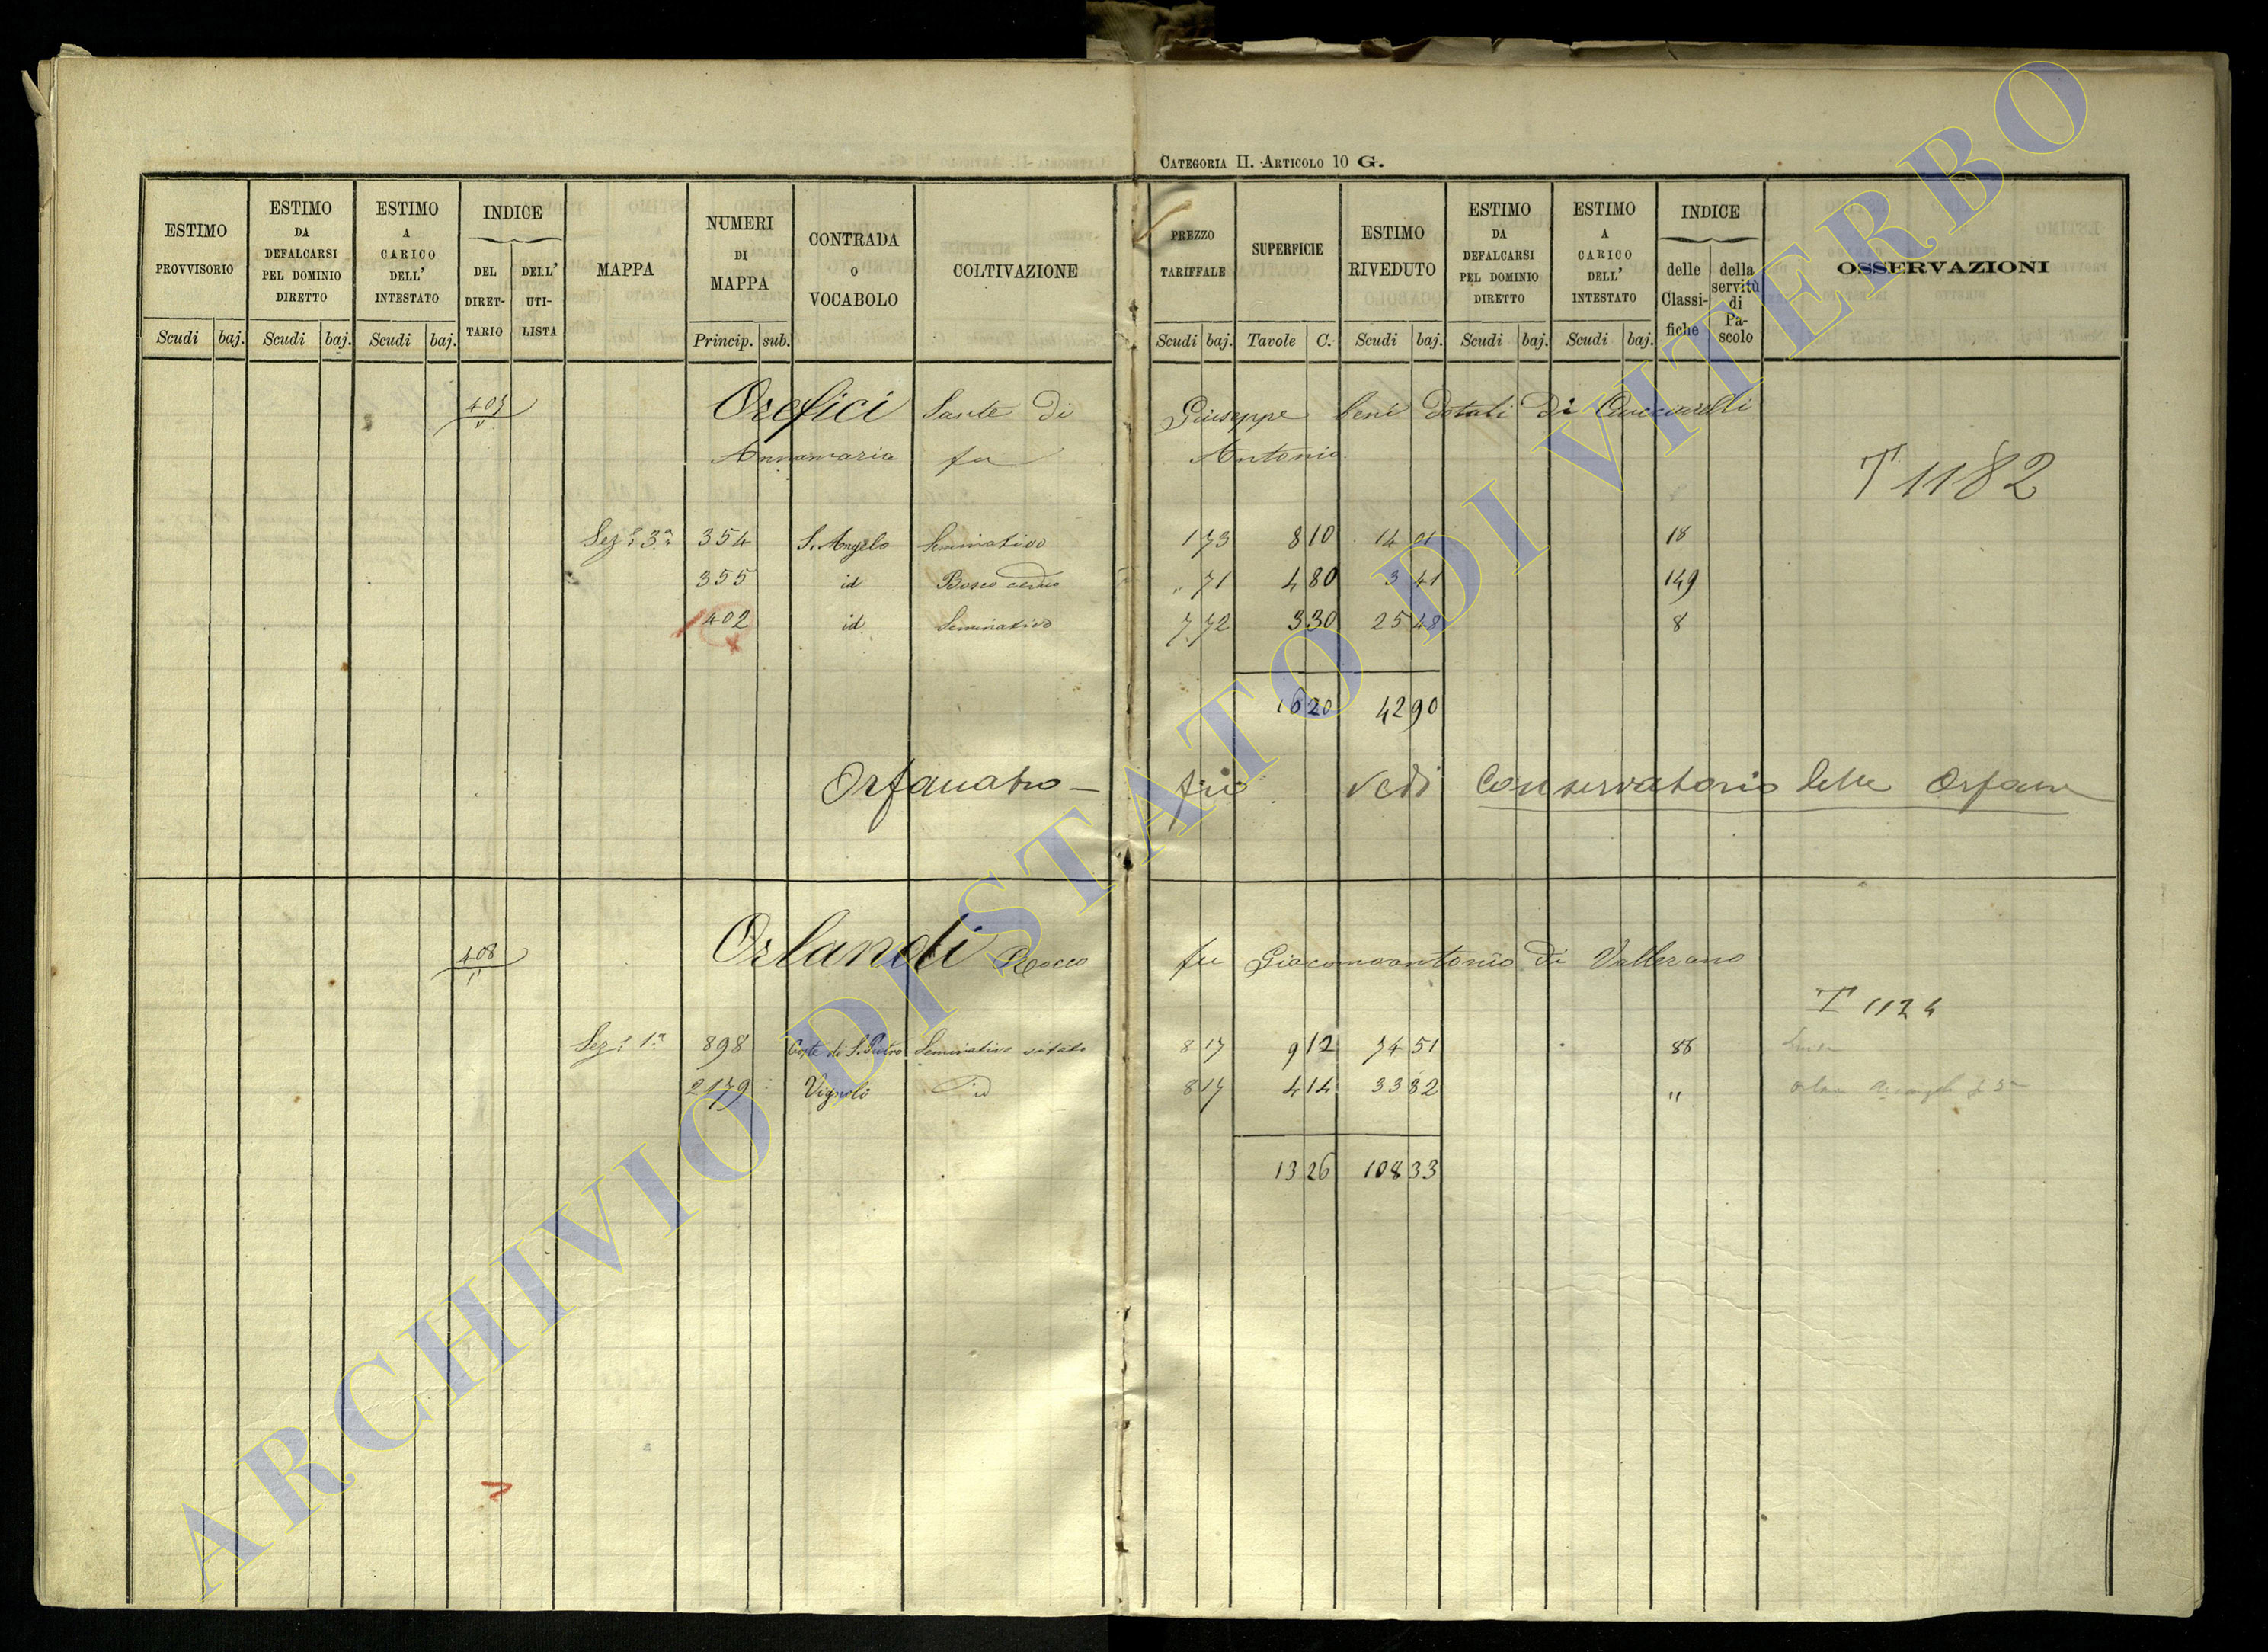 CATEGORIA II. ARTICOLO 10 G.
ESTIMO PROVVISORIO Scudi baj.
ESTIMO DA DEFALCARSI PEL DOMINIO DIRETTO Scudi baj.
ESTIMO A CARICO DELL' INTESTATO Scudi baj.
INDICE DEL DIRET-TARIO DELL' UTI-LISTA
MAPPA
NUMERI DI MAPPA Princip. sub.
CONTRADA O VOCABOLO
COLTIVAZIONE
PREZZO TARIFFALE Scudi baj.
SUPERFICIE Tavole C.
ESTIMO RIVEDUTO Scudi baj.
ESTIMO DA DEFALCARSI PEL DOMINIO DIRETTO Scudi baj.
ESTIMO A CARICO DELL' INTESTATO Scudi baj.
INDICE delle Classi-fiche della servitù di Pa-scolo
OSSERVAZIONI
407 Orefici Sante di Giuseppe beni dotali di
Annamaria fu Antonio
T 1182
Sez.e 3.a 354 S. Angelo Seminativo 1 73 8 10 14 01 18
355 id Bosco ceduo " 71 4 80 3 41 149
402 id Seminativo 7 72 3 30 25 48 8
16 20 42 90
Orfanatro-fio vedi Conservatorio delle Orfane
408 Orlandi Rocco fu Giacomoantonio di Vallerano
T 1124
Sez.e 1.a 898 Coste di S. Pietro Seminativo vitato 8 17 9 12 74 51 88
2179 Vignoli id 8 17 4 14 33 82 "
13 26 108 33
ARCHIVIO DI STATO DI VITERBO